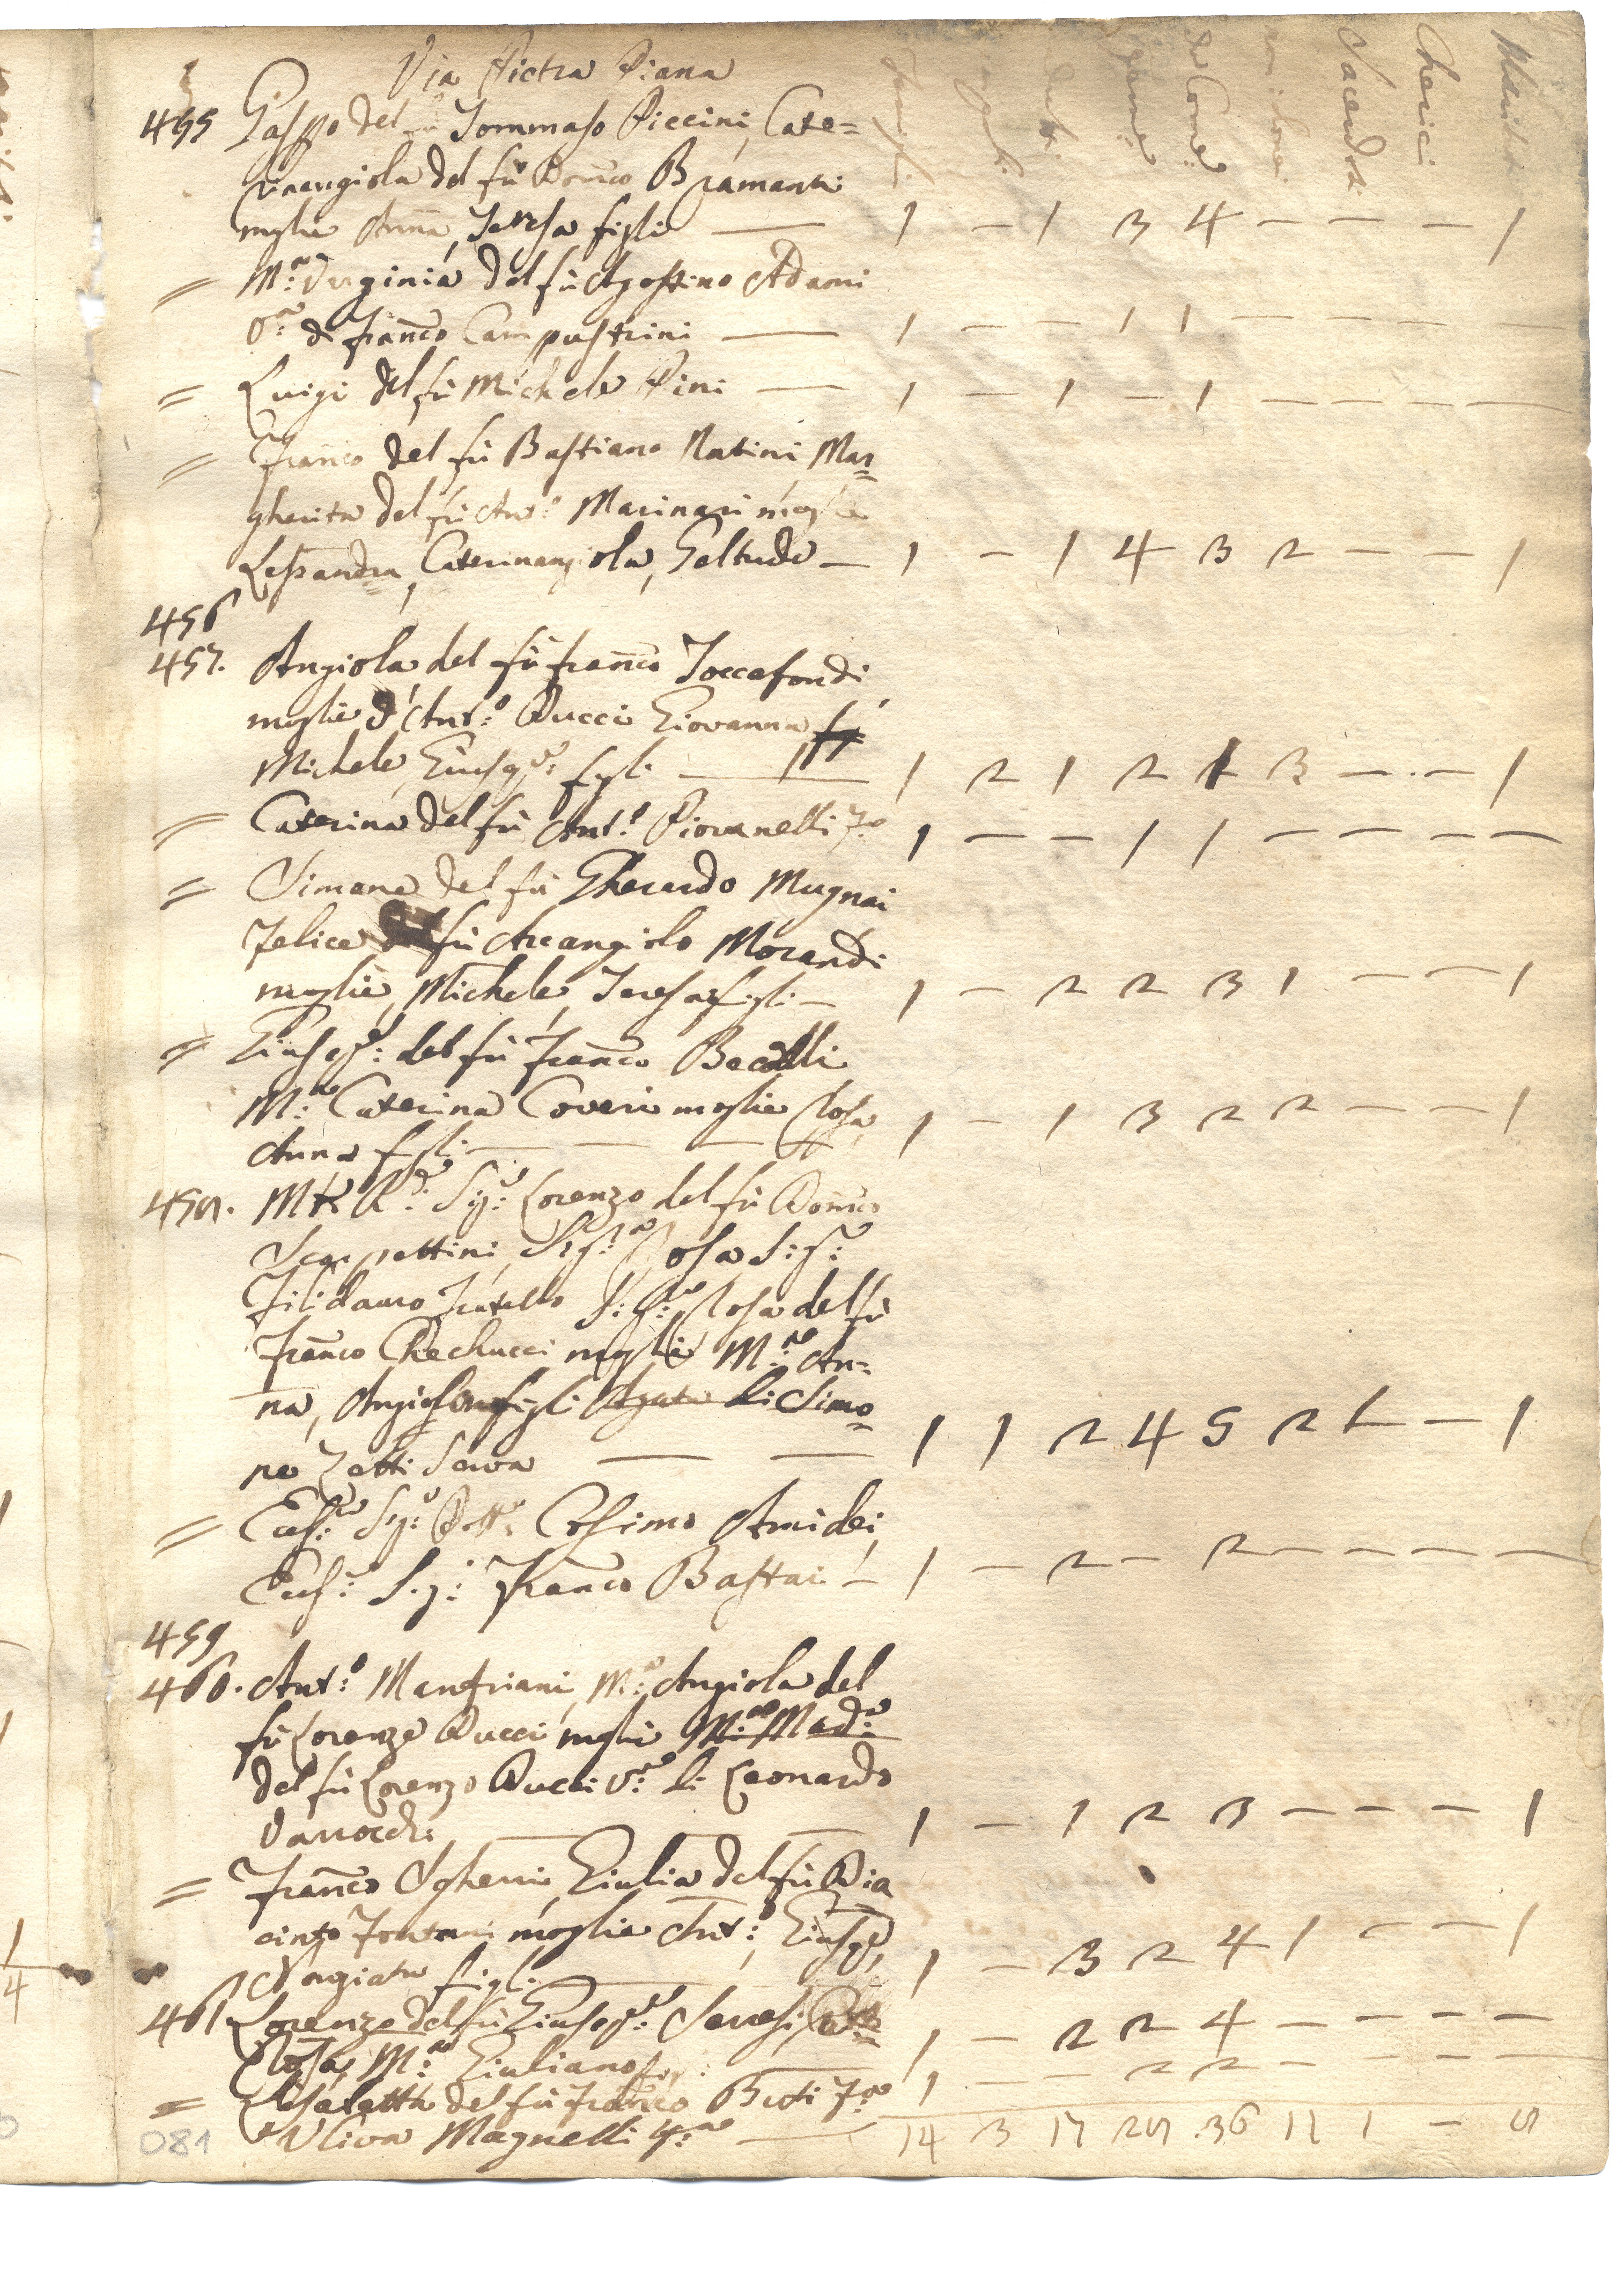 Via Pietra Piana
Sacerdoti
Cherici
455 Gaspo del fù Tommaso Piccini, Cate=
rinangiola del fù Domco Bramanti
moglie Anna, Teresa figli — 1 - 1 3 4 - - - 1
= M.a Verginia del fù Agostino Adami
V.a di Franco Campastrini — 1 - - 1 1 - - - -
= Luigi del fù Michele Pini — 1 - 1 - 1 - - - -
= Franco del fù Bastiano Natini Mar=
gherita del fù Ant.o Marinari moglie
Lessandra, Caterinangiola, Geltrude — 1 - 1 4 3 2 - - 1
456
457. Angiola del fù Franco Toccafondi
moglie d'Ant.o Ducci Giovanna
Michele, Giusep.e figli — 1 2 1 2 1 3 - - 1
= Caterina del fù Ant.o Piovanelli — 1 - - 1 1 - - - -
= Simone del fù Gherardo Mugnai
Felice del fù Arcangiolo Morandi
moglie, Michele, Teresa figli — 1 - 2 2 3 1 - - 1
= Giusep.e del fù Franco Becalli
M.a Caterina Coveri moglie Rosa,
Anna figli — 1 - 1 3 2 2 - - 1
458. M R.do Sig.e Lorenzo del fù Domco
Scarpettini, Sig.a Rosa S: S:
Filidauro fratello Rosa del fù
Franco Checcucci moglie M.a An=
na, Angiolo figli Agata di Simo=
ne Zatti Serva — 1 1 2 4 5 2 1 - 1
= Ecc.mo Sig.e Dott.e Cosimo Amidei,
Ecc.mo Sig: Franco Bastai — 1 - 2 - 2 - - - -
459
460. Ant.o Manfriani, M.a Angiola del
fù Lorenzo Ducci moglie M.a Mad.a
del fù Lorenzo Ducci V.a di Leonardo
Vannocchi — 1 - 1 2 3 - - - 1
= Franco Sgherri, Giulia del fù Dia
cinto moglie Ant.o, Giusep.e,
figli — 1 - 3 2 4 1 - - 1
461 Lorenzo del fù Giusep.e
Rosa, M.a Giuliano — 1 - 2 2 4 - - - -
= Lisabetta del fù Franco Buti — 1 - - 2 2 - - - -
Uliva Magnelli — 14 3 17 28 36 12 1 - 8
081